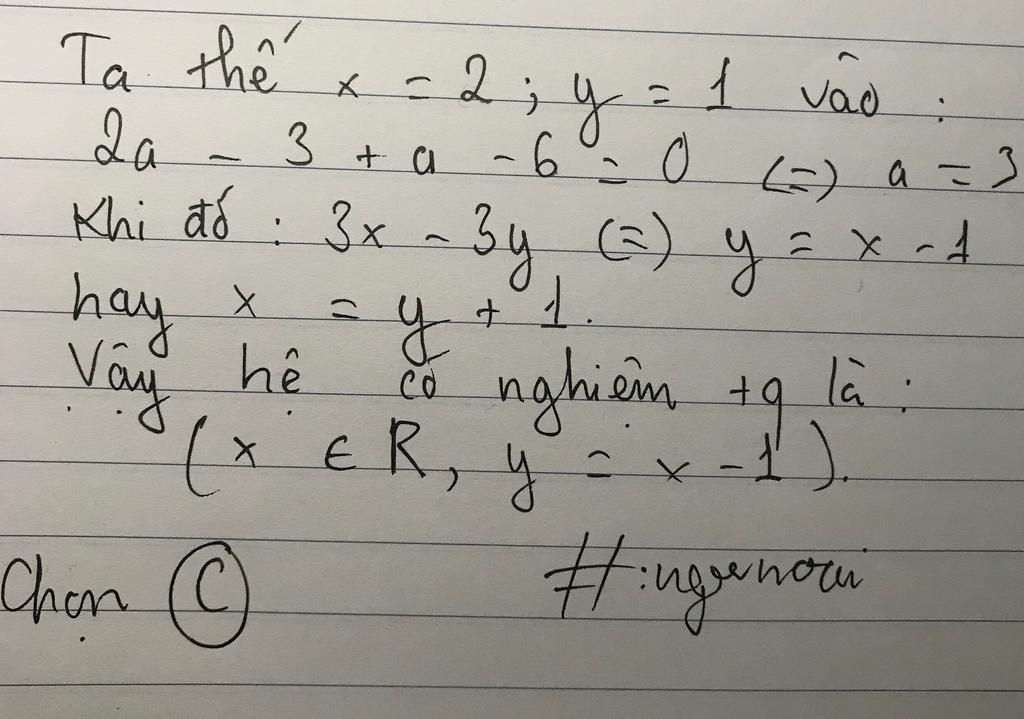 Ta thế x = 2 ; y = 1 vào :
2a - 3 + a - 6 = 0 (=) a = 3
Khi đó : 3x - 3y (=) y = x - 1
hay x = y + 1.
Vậy hệ có nghiệm +q là :
( x ∈ R, y = x - 1 ).
Chọn C #: